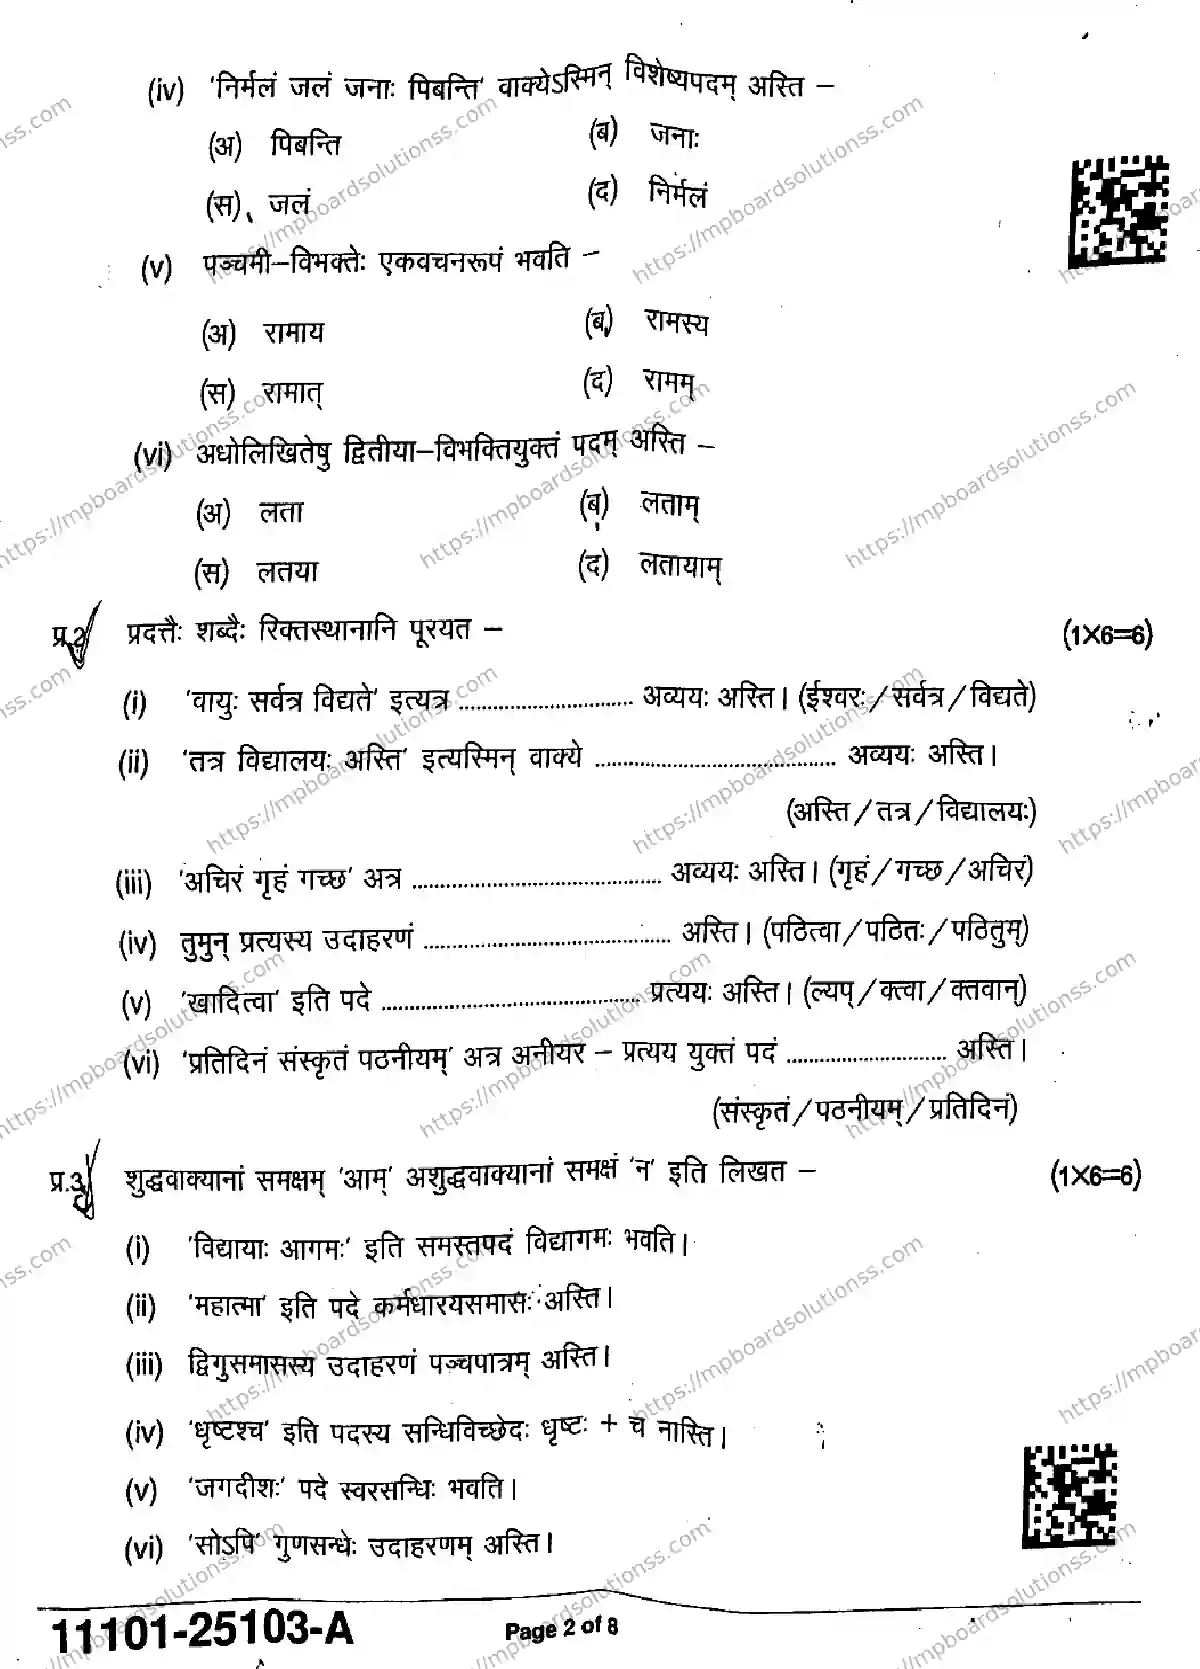 (iv) 'निर्मलं जलं जनाः पिबन्ति' वाक्येऽस्मिन् विशेष्यपदम् अस्ति –
(अ) पिबन्ति (ब) जनाः
(स) जलं (द) निर्मलं
(v) पञ्चमी–विभक्तेः एकवचनरूपं भवति –
(अ) रामाय (ब) रामस्य
(स) रामात् (द) रामम्
(vi) अधोलिखितेषु द्वितीया–विभक्तियुक्तं पदम् अस्ति –
(अ) लता (ब) लताम्
(स) लतया (द) लतायाम्
प्र.2 प्रदत्तैः शब्दैः रिक्तस्थानानि पूरयत – (1X6=6)
(i) 'वायुः सर्वत्र विद्यते' इत्यत्र .............................. अव्ययः अस्ति। (ईश्वरः / सर्वत्र / विद्यते)
(ii) 'तत्र विद्यालयः अस्ति' इत्यस्मिन् वाक्ये ........................................ अव्ययः अस्ति।
(अस्ति / तत्र / विद्यालयः)
(iii) 'अचिरं गृहं गच्छ' अत्र .......................................... अव्ययः अस्ति। (गृहं / गच्छ / अचिरं)
(iv) तुमुन् प्रत्यस्य उदाहरणं .......................................... अस्ति। (पठित्वा / पठितः / पठितुम्)
(v) 'खादित्वा' इति पदे ............................................ प्रत्ययः अस्ति। (ल्यप् / क्त्वा / क्तवान्)
(vi) 'प्रतिदिनं संस्कृतं पठनीयम्' अत्र अनीयर – प्रत्यय युक्तं पदं ........................... अस्ति।
(संस्कृतं / पठनीयम् / प्रतिदिनं)
प्र.3 शुद्धवाक्यानां समक्षम् 'आम्' अशुद्धवाक्यानां समक्षं 'न' इति लिखत – (1X6=6)
(i) 'विद्यायाः आगमः' इति समस्तपदं विद्यागमः भवति।
(ii) 'महात्मा' इति पदे कर्मधारयसमासः अस्ति।
(iii) द्विगुसमासस्य उदाहरणं पञ्चपात्रम् अस्ति।
(iv) 'धृष्टश्च' इति पदस्य सन्धिविच्छेदः धृष्टः + च नास्ति।
(v) 'जगदीशः' पदे स्वरसन्धिः भवति।
(vi) 'सोऽपि' गुणसन्धेः उदाहरणम् अस्ति।
11101-25103-A Page 2 of 8
https://mpboardsolutionss.com